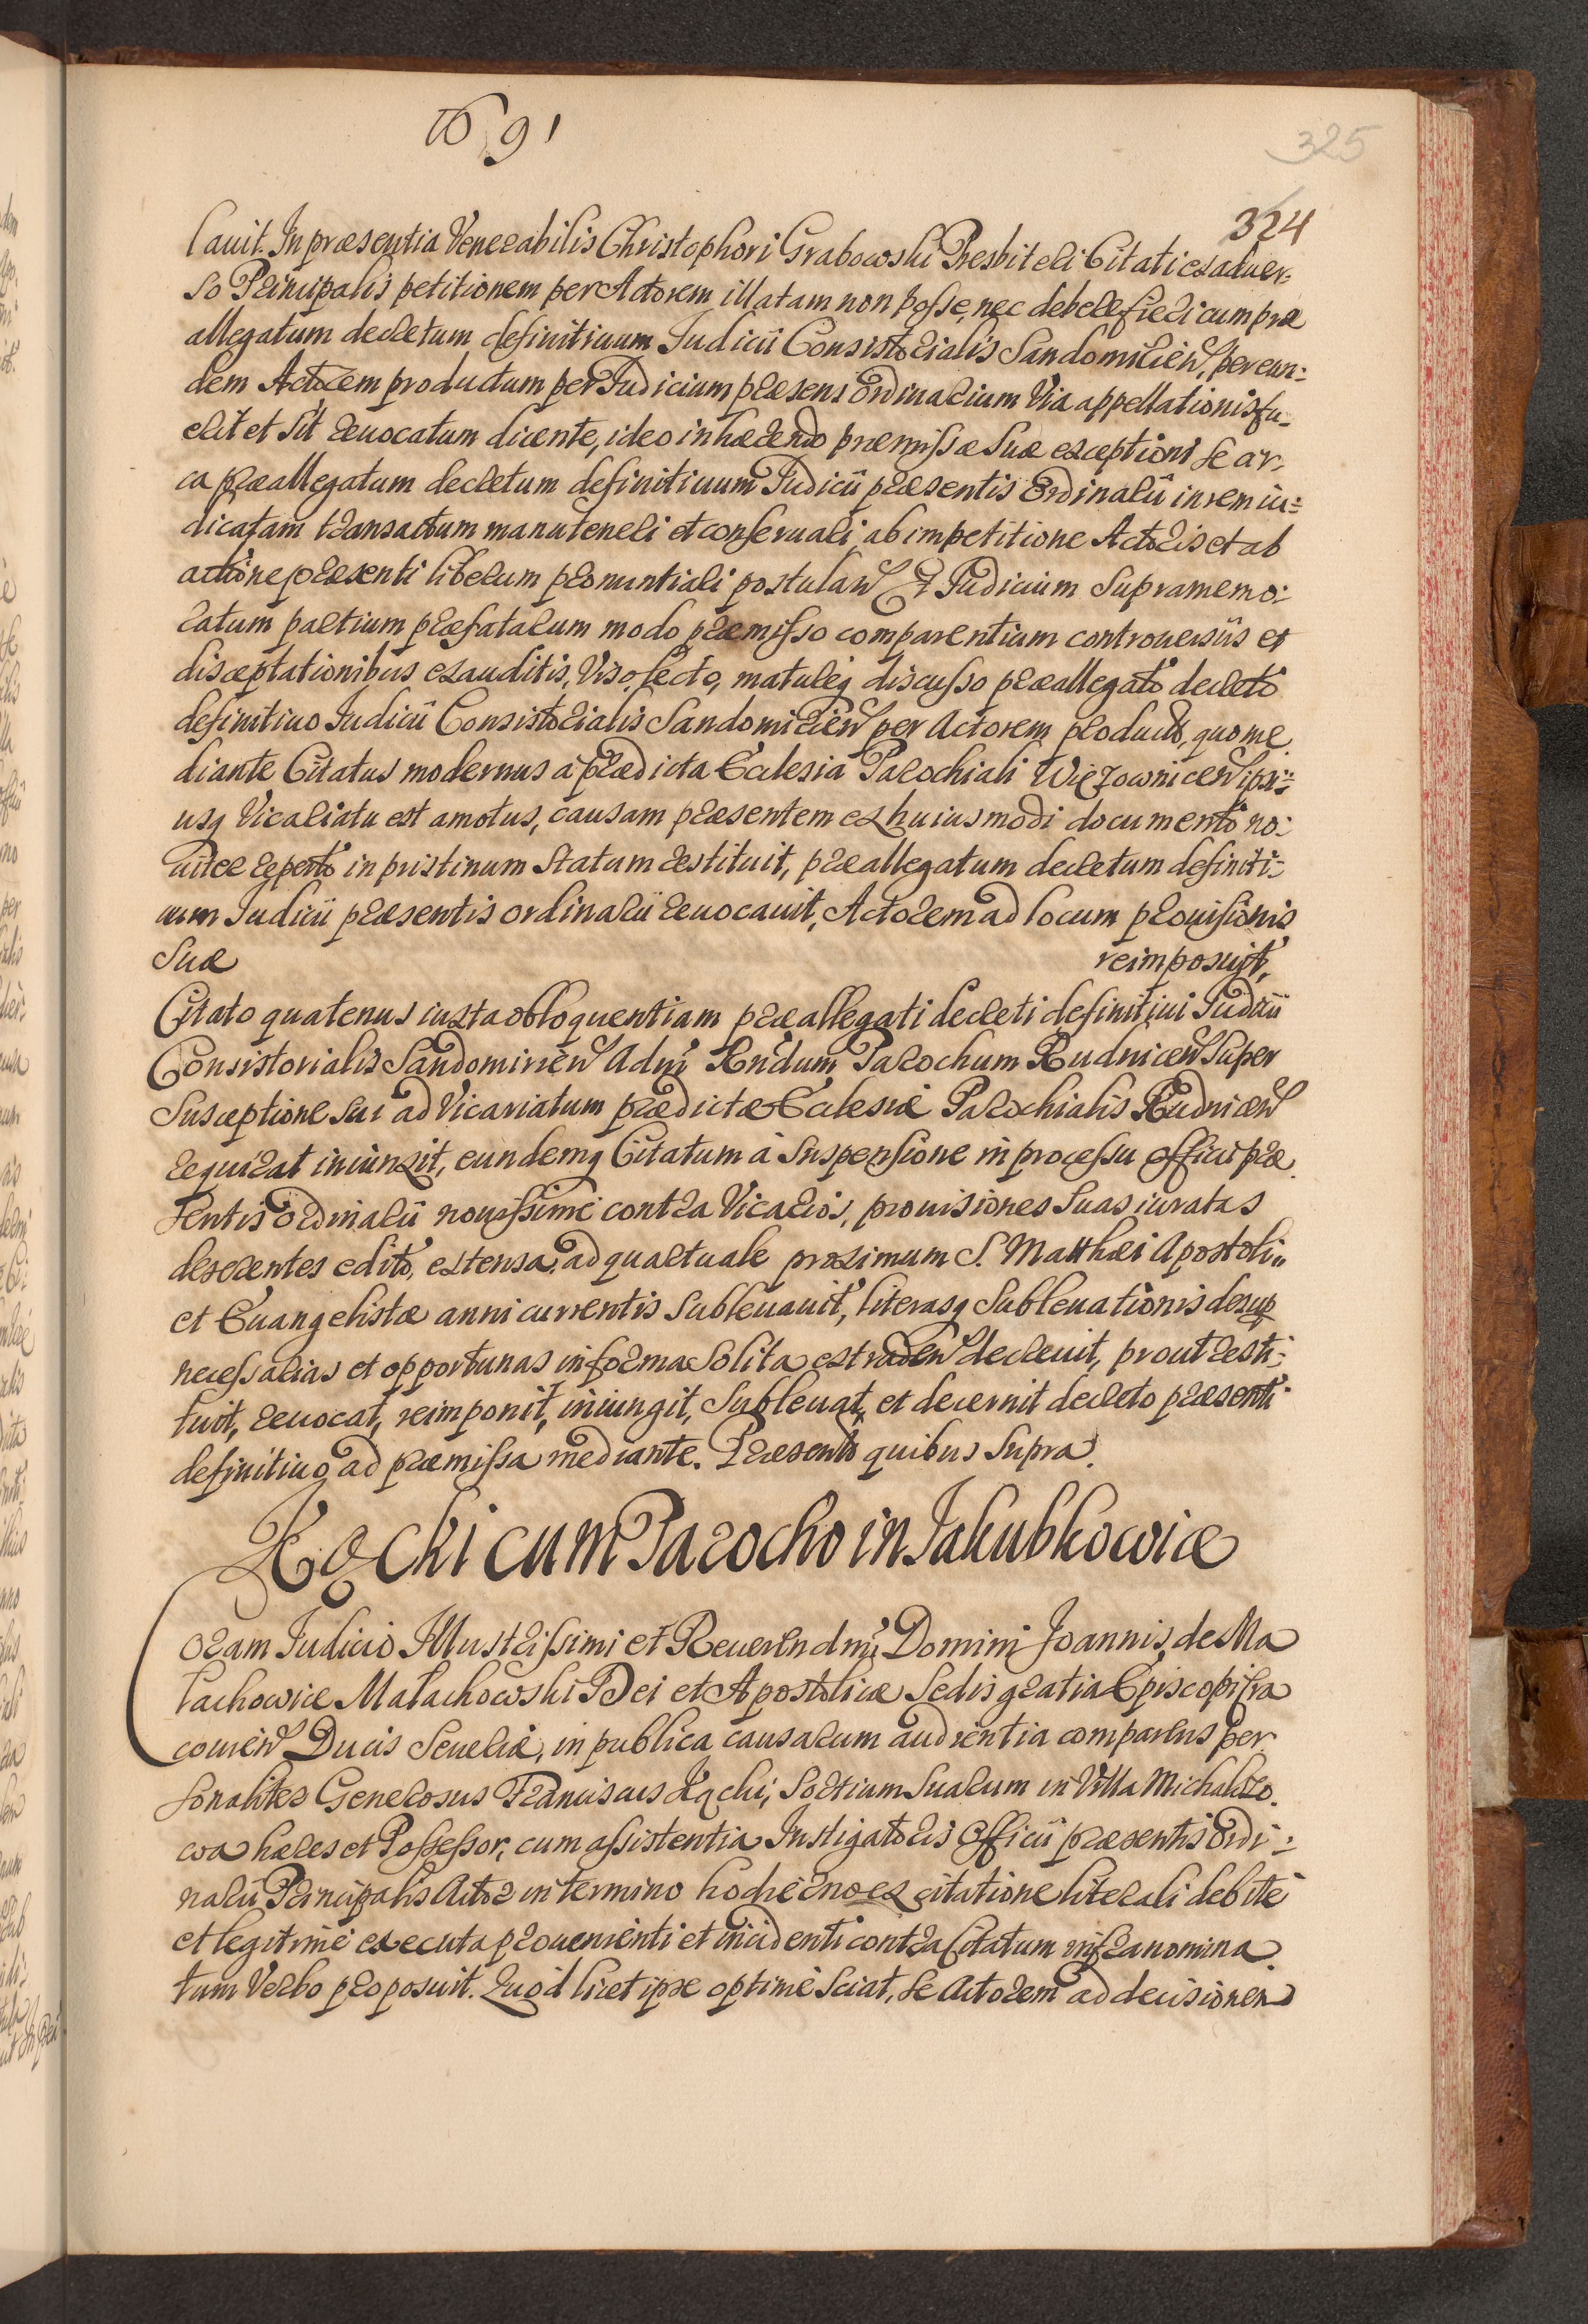 1691
325
324
lauit. In præsentia Venerabilis Christophori Grabowski Presbiteri Citati ex aduer-
so Principalis petitionem per Actorem illatam non posse, nec debere fieri cum præ
allegatum decretum definitiuum Judicii Consistorialis Sandomirien, per eun-
dem Actorem productum per Judicium præsens Ordinarium Via appellationis fu-
erit et sit reuocatum dicente, ideo inhærendo præmissæ suæ exceptioni se cir-
ca præallegatum decretum definitiuum Judicii præsentis Ordinarii in rem iu-
dicatam transactum manuteneri et conseruari, ab impetitione Actoris et ab
actione præsenti liberum pronuntiari postulan Et Judicium supramemo-
ratum partium præfatarum modo præmisso comparentium controuersiis et
disceptationibus exauditis, Viso, lecto, matureq discusso præallegato decreto
definitiuo Judicii Consistorialis Sandomirien per Actorem producto, quo me
diante Citatus modernus à prædicta Ecclesia Parochiali Więzownicen ipsi-
usq Vicariatu est amotus, causam præsentem ex huiusmodi documento no-
uiter reperto in pristinum statum restituit, præallegatum decretum definiti-
uum Judicii præsentis ordinarii reuocauit, Actorem ad locum prouisionis
suæ reimposuit,
Citato quatenus iuxta obloquentiam præallegati decreti definitiui Judicii
Consistorialis Sandomirien Adm Rndum Parochum Rudnicen super
susceptione sui ad Vicariatum prædictæ Ecclesiæ Parochialis Rudnicen
requirat iniunxit, eundemq Citatum à suspensione in processu officii præ
sentis ordinarii nouissime contra Vicarios, prouisiones suas iuratas
deserentes edito, extensa, ad quartuale proximum S. Matthæi Apostoli
et Euangelistæ anni currentis subleuauit, literasq subleuationis desup
necessarias et opportunas in forma solita extraden decreuit, prout resti-
tuit, reuocat, reimponit, iniungit, subleuat, et decernit decreto præsenti
definitiuo ad præmissa mediante. Præsentib quibus supra.
Kącki cum Parocho in Jakubkowice
Coram Judicio Illustrissimi et Reuerendmi Domini Joannis de Ma
łachowice Małachowski Dei et Apostolicæ Sedis gratia Episcopi Cra
couien Ducis Seueriæ, in publica causarum audientia comparens per
sonaliter Generosus Franciscus Kącki, Sortium suarum in Villa Michalczo
wa hæres et Possessor, cum assistentia Instigatoris Officii præsentis Ordi-
narii Principalis Actor in termino hodierno ex citatione literali debite
et legitime executa proueniente et incidenti contra Citatum infranomina
tum Verbo proposuit. Quod licet ipse optime sciat, se Actorem ad decisionem